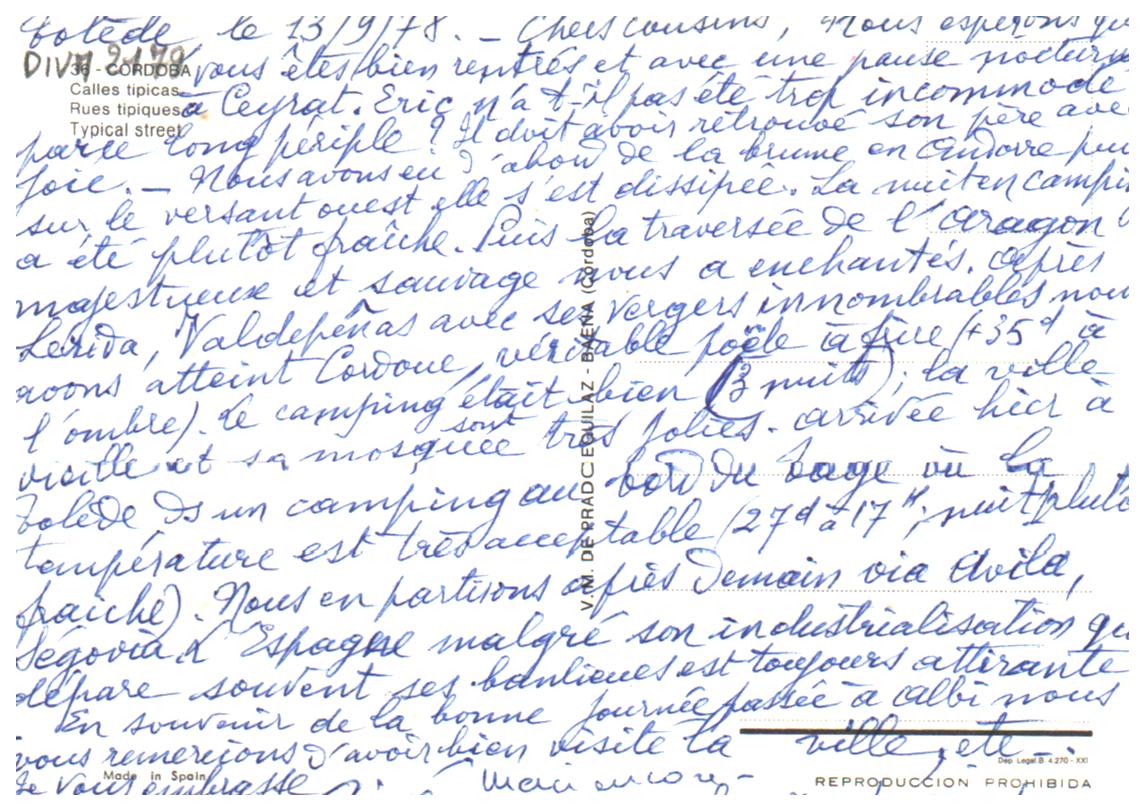 Tolède le 13/9/78. - Chers cousins, Nous espérons qu
DIVA 2179
36 - CORDOBA
Calles tipicas
Rues tipiques
Typical street
vous êtes bien rentrés et avec une pause nocturn
à Ceyrat. Eric n'a t-il pas été trop incommodé
par ce long périple ? Il doit avoir retrouvé son père ave
joie. - Nous avons eu d'abord de la brume en Andorre pui
sur le versant ouest elle s'est dissipée. La nuit en campi
a été plutôt fraîche. Puis la traversée de l'Aragon
majestueux et sauvage nous a enchantés. Après
Lerida, Valdepeñas avec ses vergers innombrables nou
avons atteint Cordoue, véritable poële à frire (+35d à
l'ombre). Le camping était bien (3 nuits); la ville
vieille et sa mosquée sont très jolies. Arrivée hier à
Tolède ds un camping au bord du Tage où la
température est très acceptable (27d à 17H; nuit plutô
fraîche). Nous en partirons après demain via Avila,
Ségovia. L'Espagne malgré son industrialisation qu
dépare souvent ses banlieues est toujours attirante
En souvenir de la bonne journée passée à Albi nous
vous remercions d'avoir bien visité la ville, etc...
Je vous embrasse
Merci encore
V. M. DE PRADC EGUILAZ - BAENA (Córdoba)
Made in Spain
Dep. Legal. B. 4.270 - XXI
REPRODUCCION PROHIBIDA